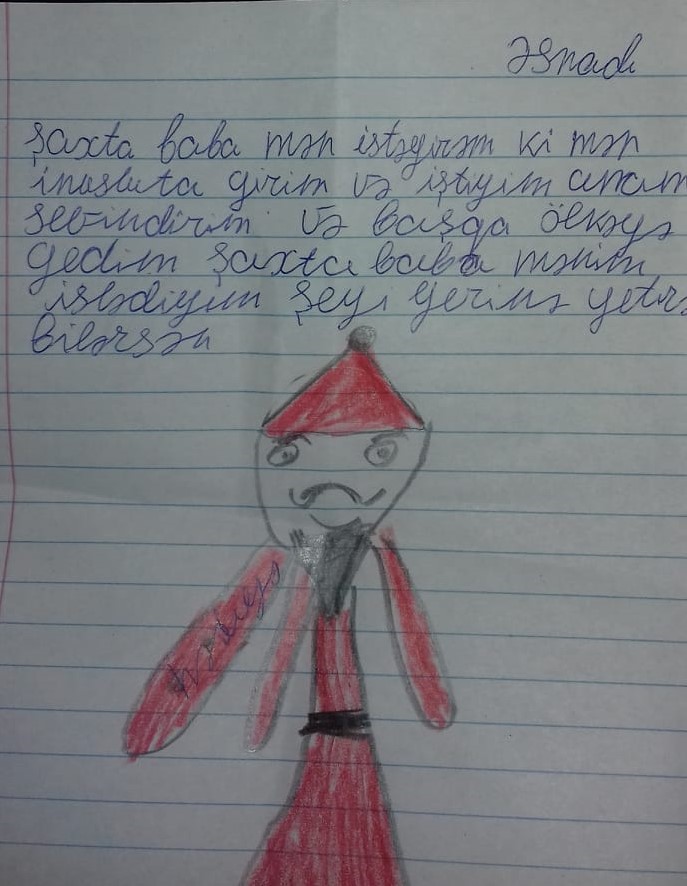 Əsnadı
Şaxta baba mən istəyirəm ki mən
insluta girim və iştiyim anam
sevindirim və başqa ölkəyə
gedim Şaxta baba mənim
istədiyim şeyi yerinə yetirə
bilərsən
hədiyyə